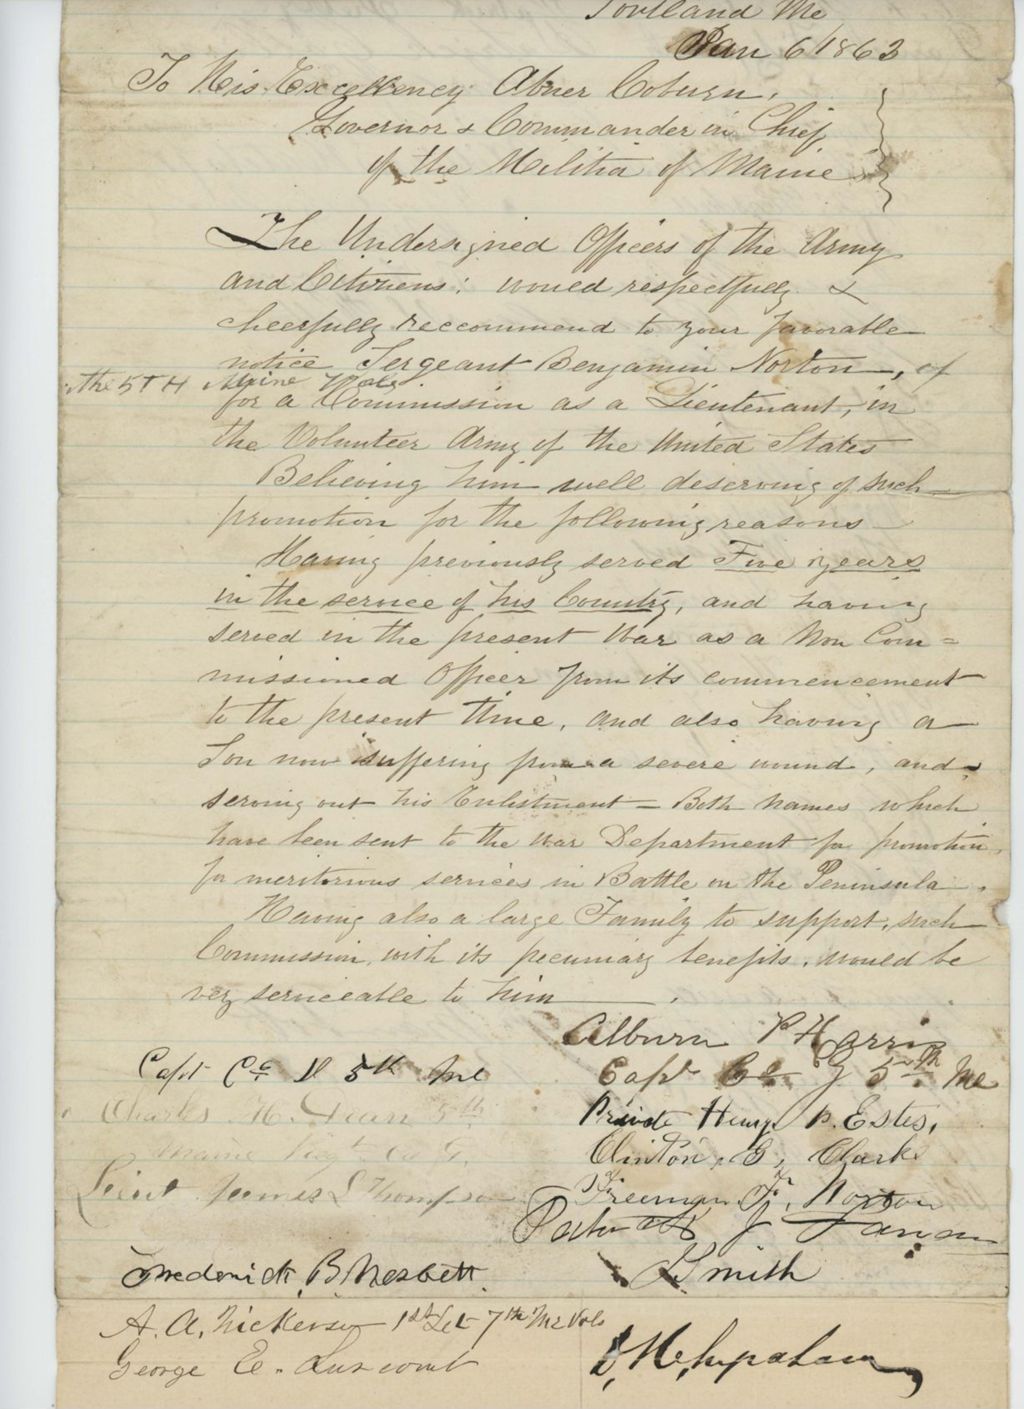 Portland Me
Jan 6 1863
To His Excellency Abner Coburn,
Governor & Commander in Chief
of the Militia of Maine
The Undersigned Officers of the Army
and Citizens; would respectfully &
cheerfully reccommend to your favorable
notice Sergeant Benjamin Norton, of
the 5TH Maine Vols
for a Commission as a Lieutenant, in
the Volunteer Army of the United States
Believing him well deserving of such
promotion for the following reasons
Having previously served Five years
in the service of his Country, and having
served in the present War as a Non Com=
missioned Officer from its commencement
to the present time, and also having a
Son now suffering from a severe wound, and
serving out his Enlistment = Both names which
have been sent to the War Department for promotion,
for meritorious services in Battle on the Peninsula.
Having also a large Family to support, such
Commission, with its pecuniary benefits, would be
very serviceable to him
Alburn P Harris
Capt Co D 5th Me
Capt Co 5th Me
Charles H. 5th
Maine Regt Co G.
Private Henry P. Estes,
Clinton, G, Clarks
Lieut James L Thompson
Freeman F, Norton
Frederick, B, Nesbett.
Smith
A. A. Nickerson 1st Lt 7th Me Vols
George E.